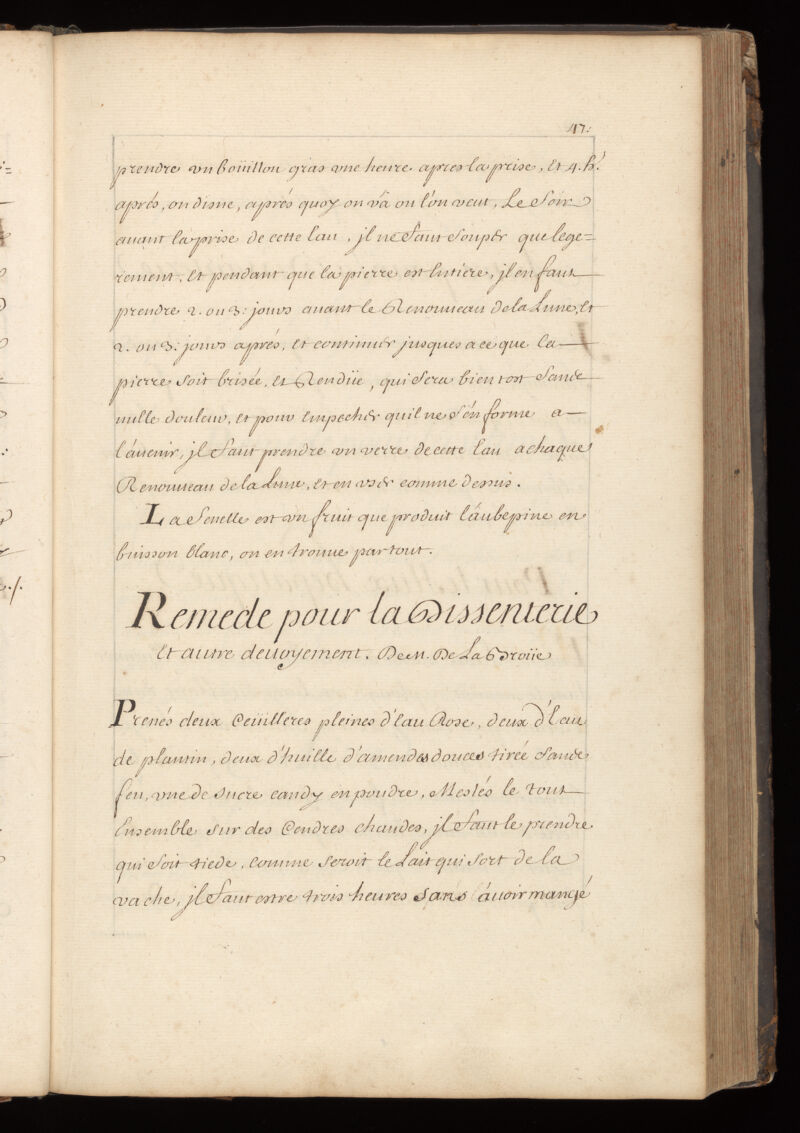 47.
prendre vn boüillon gras vne heure apres la prise, et 4. h.
aprés, on disne, aprés quoy on và ou lón veut, Le Soir
auant la prise de cette Eau, jl ne faut Souper que lege=
rement, Et pendant que la pierre est Entiere, jl en faut
prendre 2. ou 3: jours auant le Renouueau de la Lune, et
2. ou 3: jours aprés, et continuer jusques a ce que la
pierre soit brisée, et Rendüe, qui sera bien tost Sans
nulle douleur, et pour Empecher quil ne s'en forme a
l'auenir, jl faut prendre vn verre de cette Eau a chaque
Renouueau de la Lune, et en vser comme dessus.
La Senelle est vn fruit que produit l'aubepine en
buisson blanc, on en trouue par tout.
Remede pour la Dissenterie
et autre deuoyement. De M. De La Groüe
Prenés deux Ceüilleres pleines d'Eau Rose, deux d'Eau
de plantin, deux d'huille d'amendes douces tirée Sans
feu, vne de sucre candy en poudre, Meslés le tout
Ensemble sur des Cendres chaudes, jl faut le prendre
qui soit tiede, comme seroit le Lait qui sort de la
vache, jl faut estre trois heures sans áuoir mangé